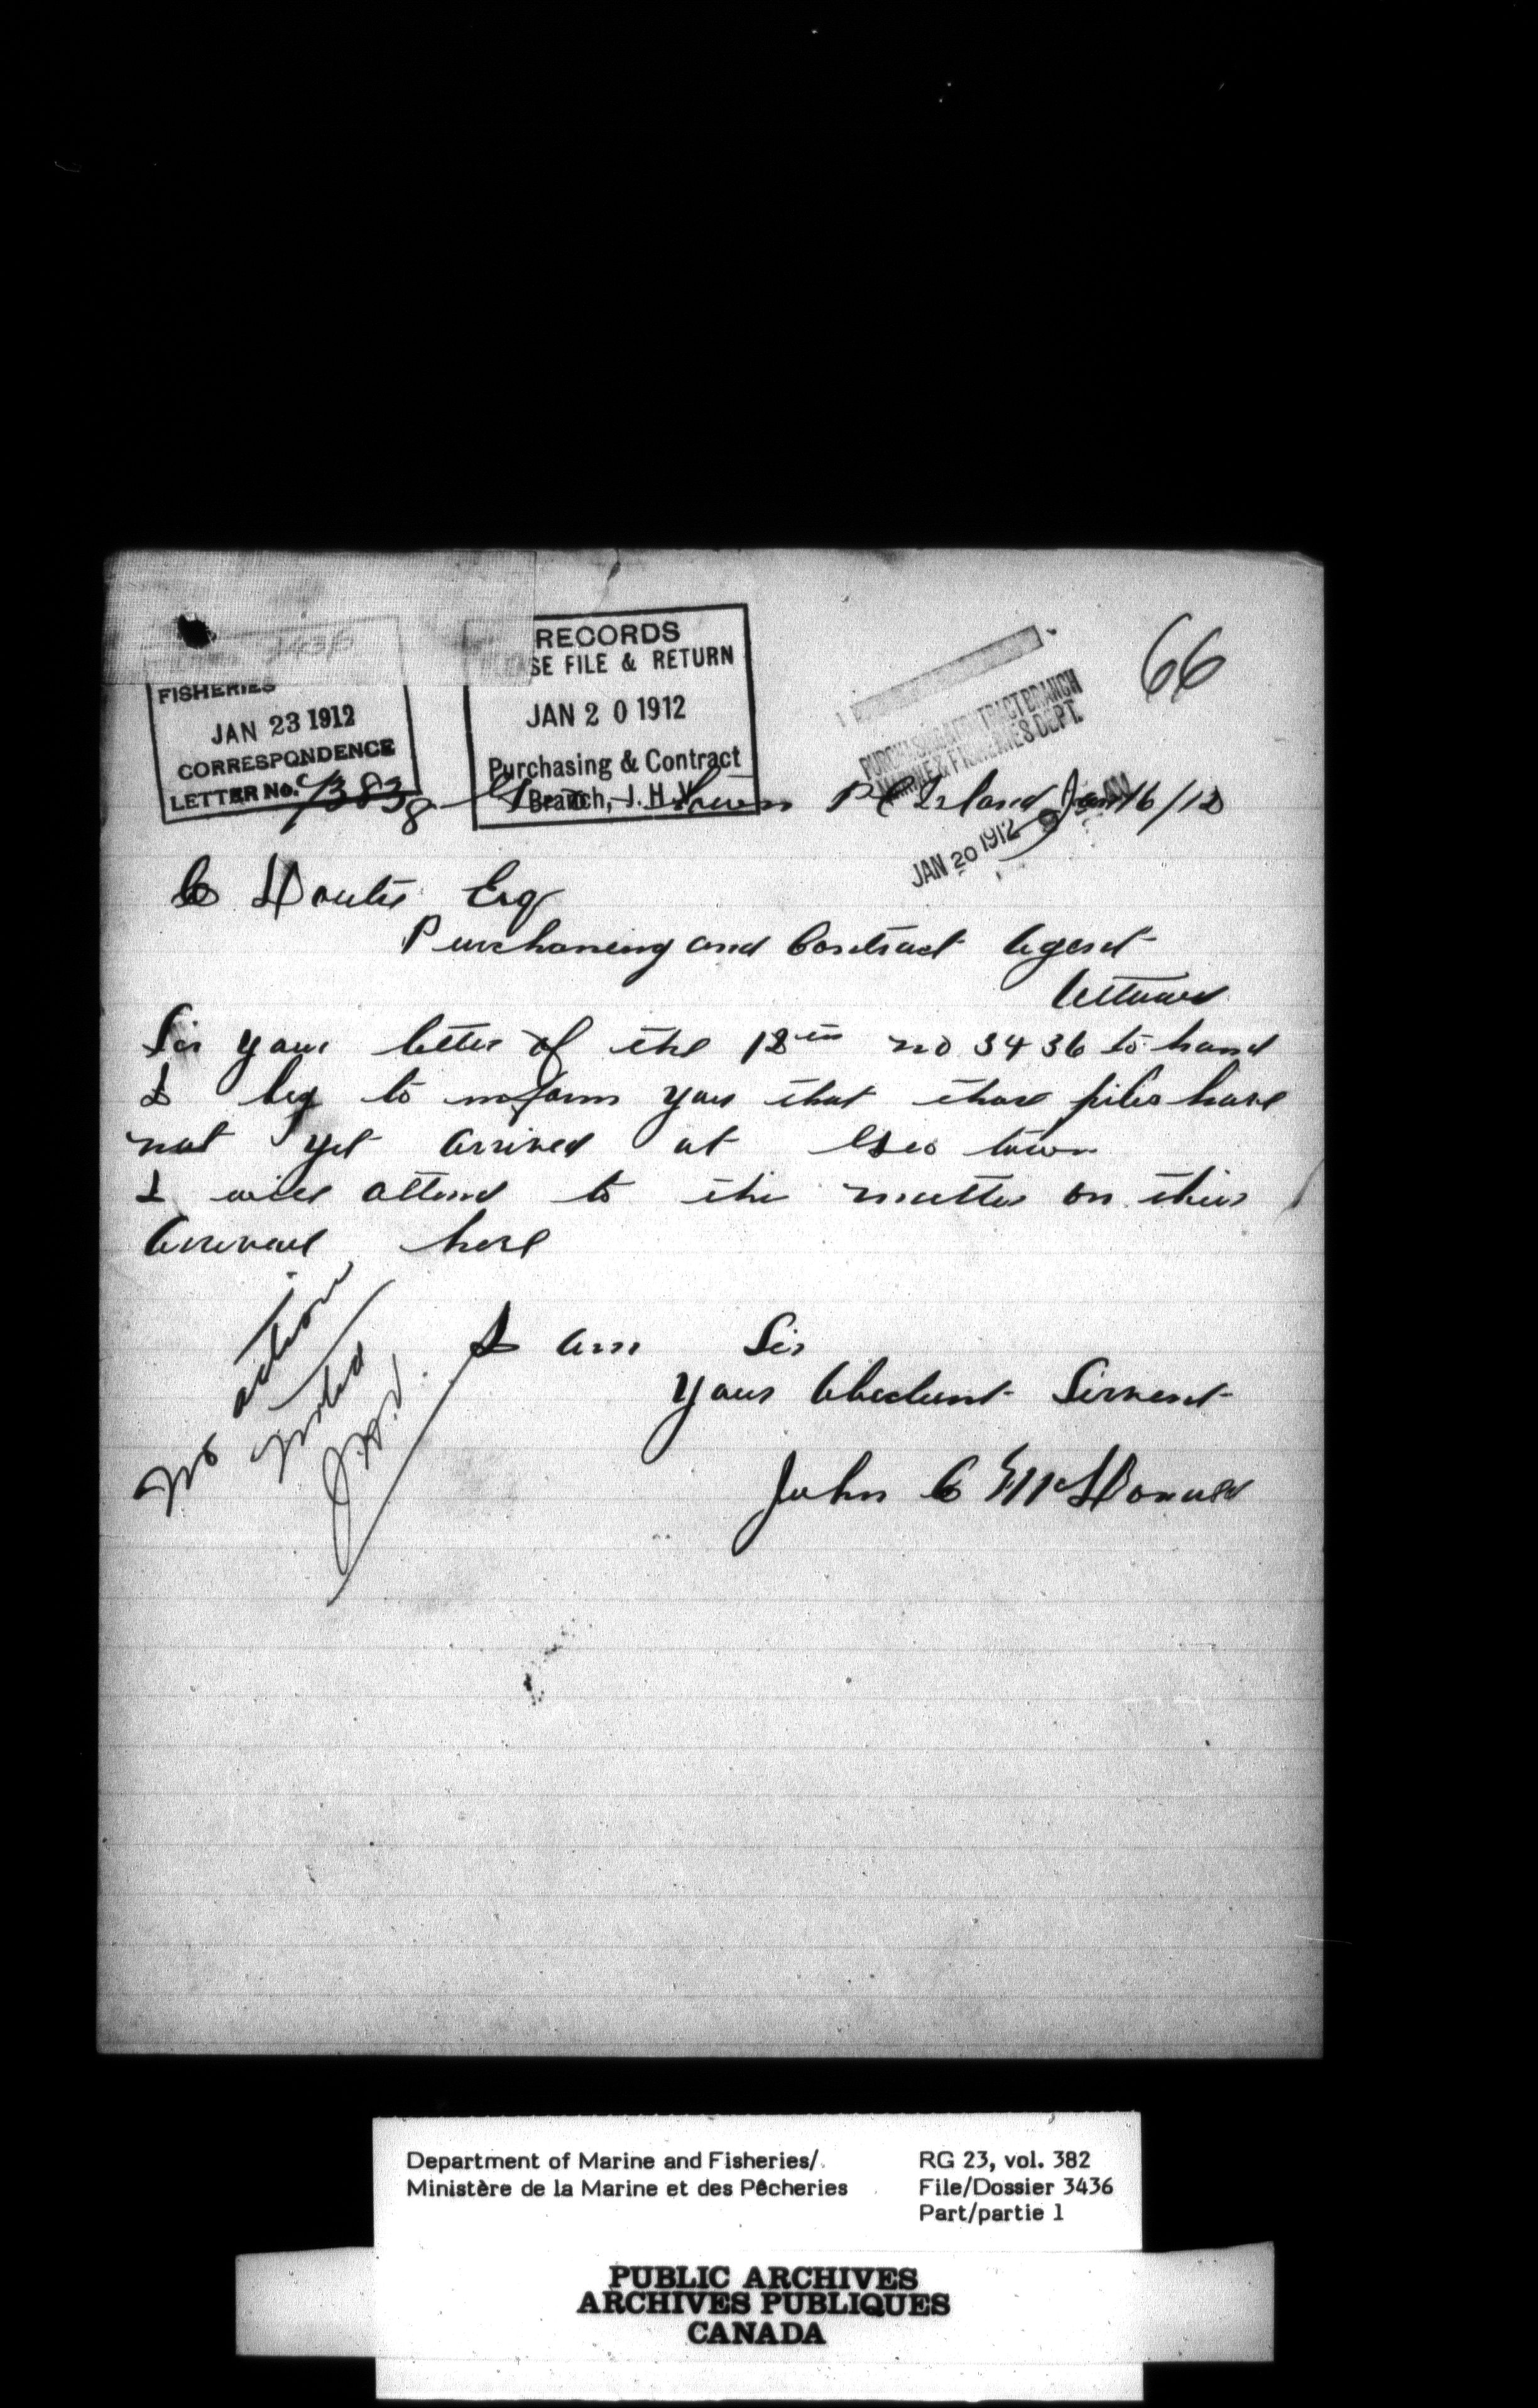 66
3436
FISHERIES
JAN 23 1912
CORRESPONDENCE
LETTER No.
RECORDS
SE FILE & RETURN
JAN 20 1912
Purchasing & Contract
Branch, J. H. V.
PURCHASING & CONTRACT BRANCH
MARINE & FISHERIES DEPT.
JAN 20 1912
town P E Island Jan 16/12
C Doutre Esq
Purchaseing and Contract Agent
Ottawa
Sir your letter of the 12th no 3436 to hand
I beg to inform you that those piles have
not yet arrived at Geo town
I will attend to the matter on their
Arrival here
I am Sir
Your Obedient Servent
John C McDonald
No action
noted
J.H.V.
Department of Marine and Fisheries/
Ministère de la Marine et des Pêcheries
RG 23, vol. 382
File/Dossier 3436
Part/partie 1
PUBLIC ARCHIVES
ARCHIVES PUBLIQUES
CANADA